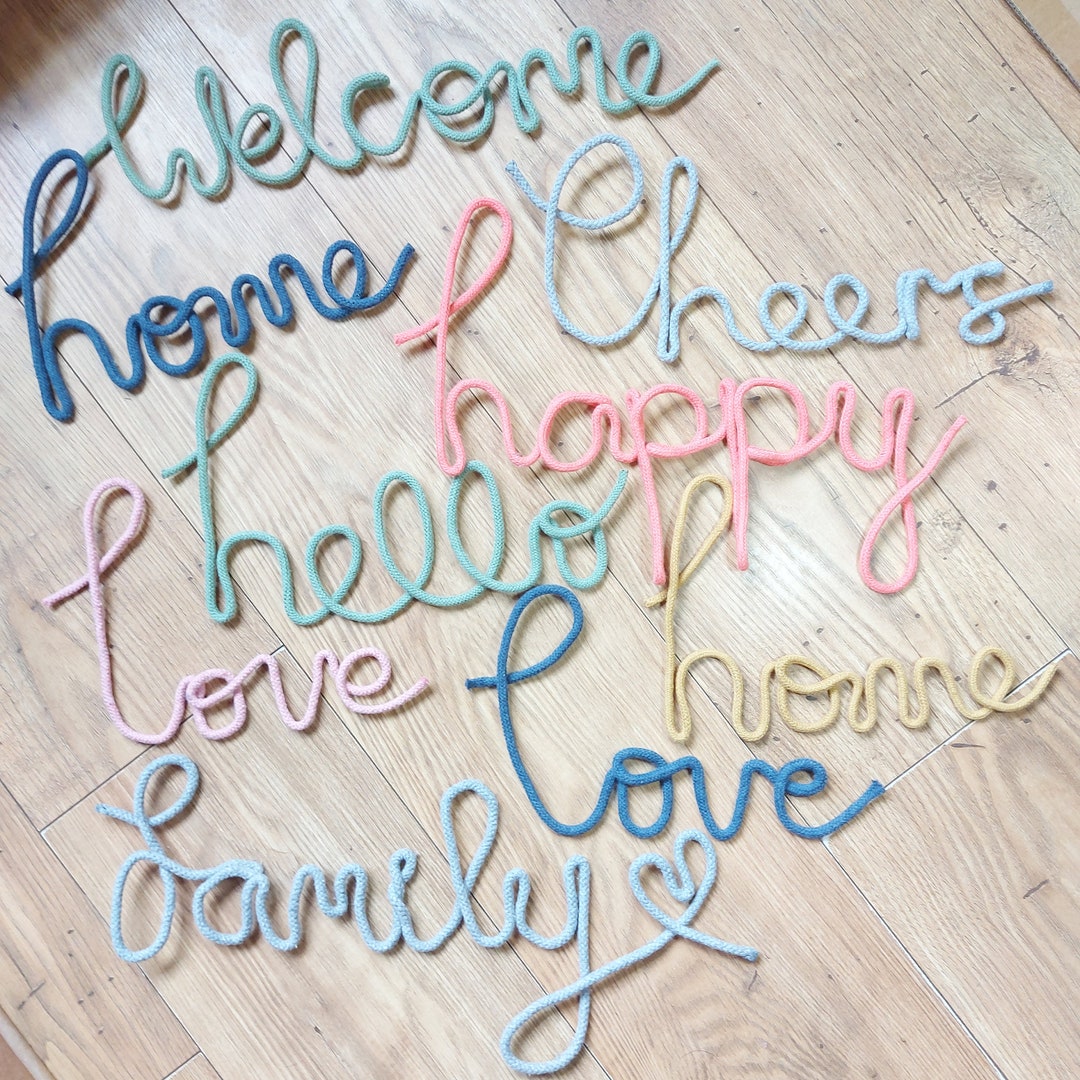 Welcome
home
Cheers
happy
hello
love
home
love
family